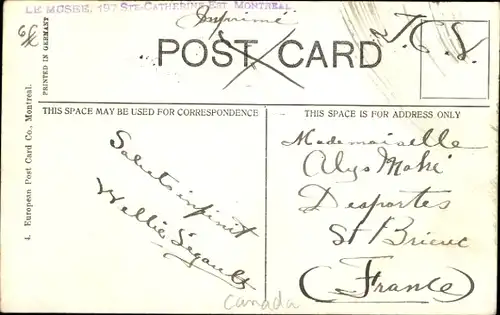 LE MUSEE, 197 STE-CATHERINE EST MONTREAL.
Imprimé
T.C.V.
POST CARD
PRINTED IN GERMANY
4. European Post Card Co., Montreal.
THIS SPACE MAY BE USED FOR CORRESPONDENCE
Saluts
Wellie Ségault
Canada
THIS SPACE IS FOR ADDRESS ONLY
Mademoiselle
Alys Mahé
Desportes
St Brieuc
(France)